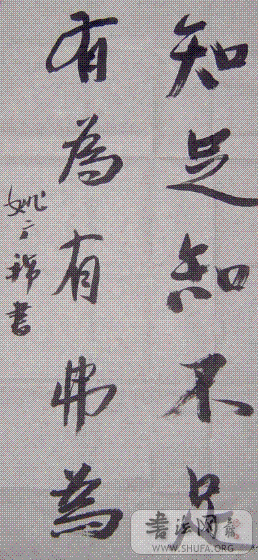 知足知不足
有為有弗為
姚立祥書
書法网
WWW.SHUFA.ORG